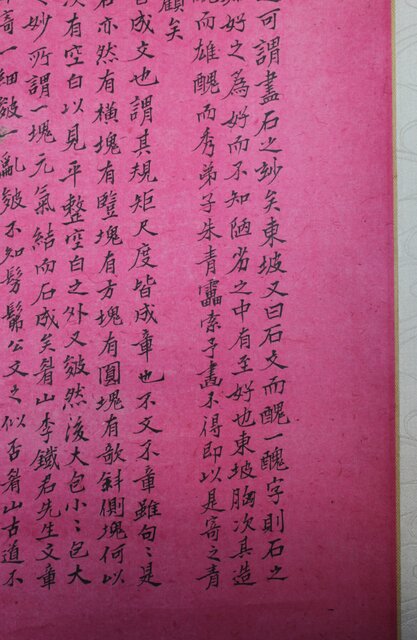 可謂盡石之妙矣東坡又曰石文而醜一醜字則石之
好之為好而不知陋劣之中有至好也東坡胸次其造
醜而雄醜而秀弟子朱青靁索予畫不得即以是寄之青
顧矣
皆成文也謂其規矩尺度皆成章也不文不章雖句〻是
亦然有橫塊有豎塊有方塊有圓塊有欹斜側塊何以
次有空白以見平整空白之外又皴然後大包小〻包大
之妙所謂一塊元氣結而石成矣眉山李鐵君先生文章
一細皴一亂皴不知髣髴公文之似否眉山古道不